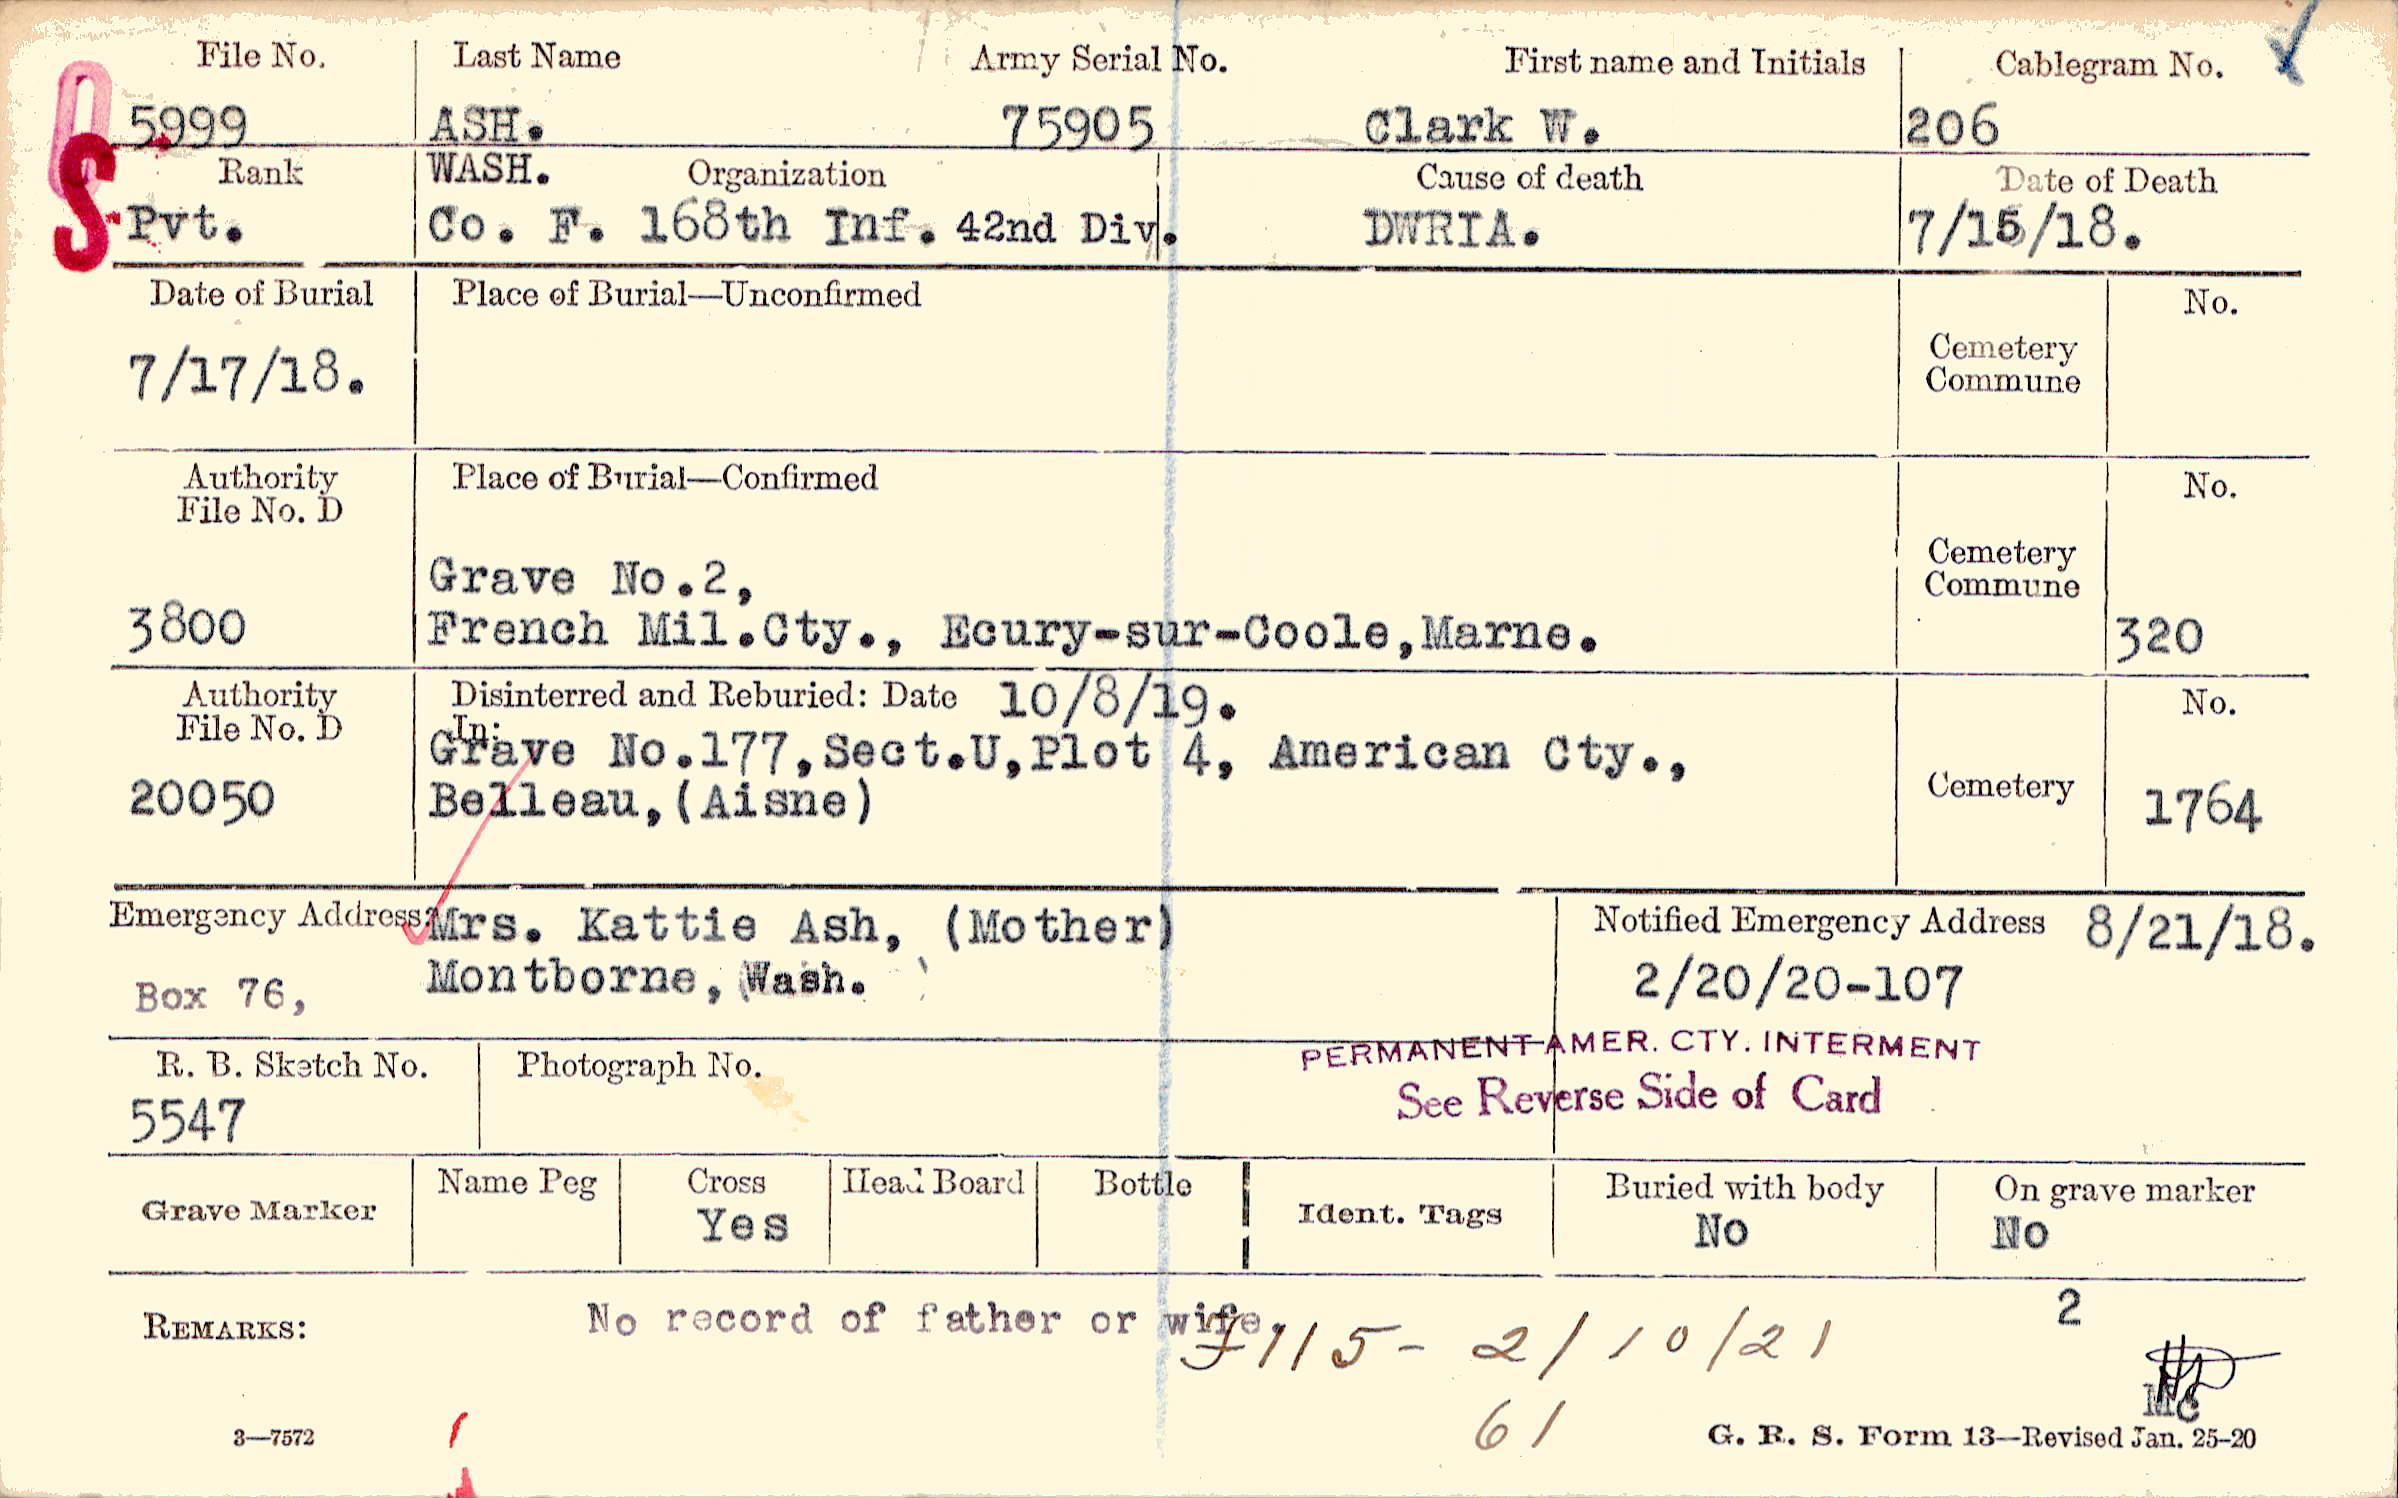 File No. Last Name Army Serial No. First name and Initials Cablegram No.
5999 ASH. 75905 Clark W. 206
Rank WASH. Organization Cause of death Date of Death
Pvt. Co. F. 168th Inf. 42nd Div. DWRIA. 7/15/18.
Date of Burial Place of Burial—Unconfirmed No.
7/17/18.
Cemetery
Commune
Authority Place of Burial—Confirmed No.
File No. D
Cemetery
Commune
Grave No.2,
3800 French Mil.Cty., Ecury-sur-Coole,Marne. 320
Authority Disinterred and Reburied: Date 10/8/19. No.
File No. D In:
Grave No.177,Sect.U,Plot 4, American Cty.,
20050 Belleau,(Aisne) Cemetery 1764
Emergency Address: Mrs. Kattie Ash, (Mother) Notified Emergency Address 8/21/18.
Box 76, Montborne, Wash. 2/20/20-107
PERMANENT AMER. CTY. INTERMENT
See Reverse Side of Card
R. B. Sketch No. Photograph No.
5547
Grave Marker Name Peg Cross Head Board Bottle Ident. Tags Buried with body On grave marker
Yes No No
REMARKS: No record of father or wife. 2
F115- 2/10/21
61
MC
3—7572 G. R. S. Form 13—Revised Jan. 25-20